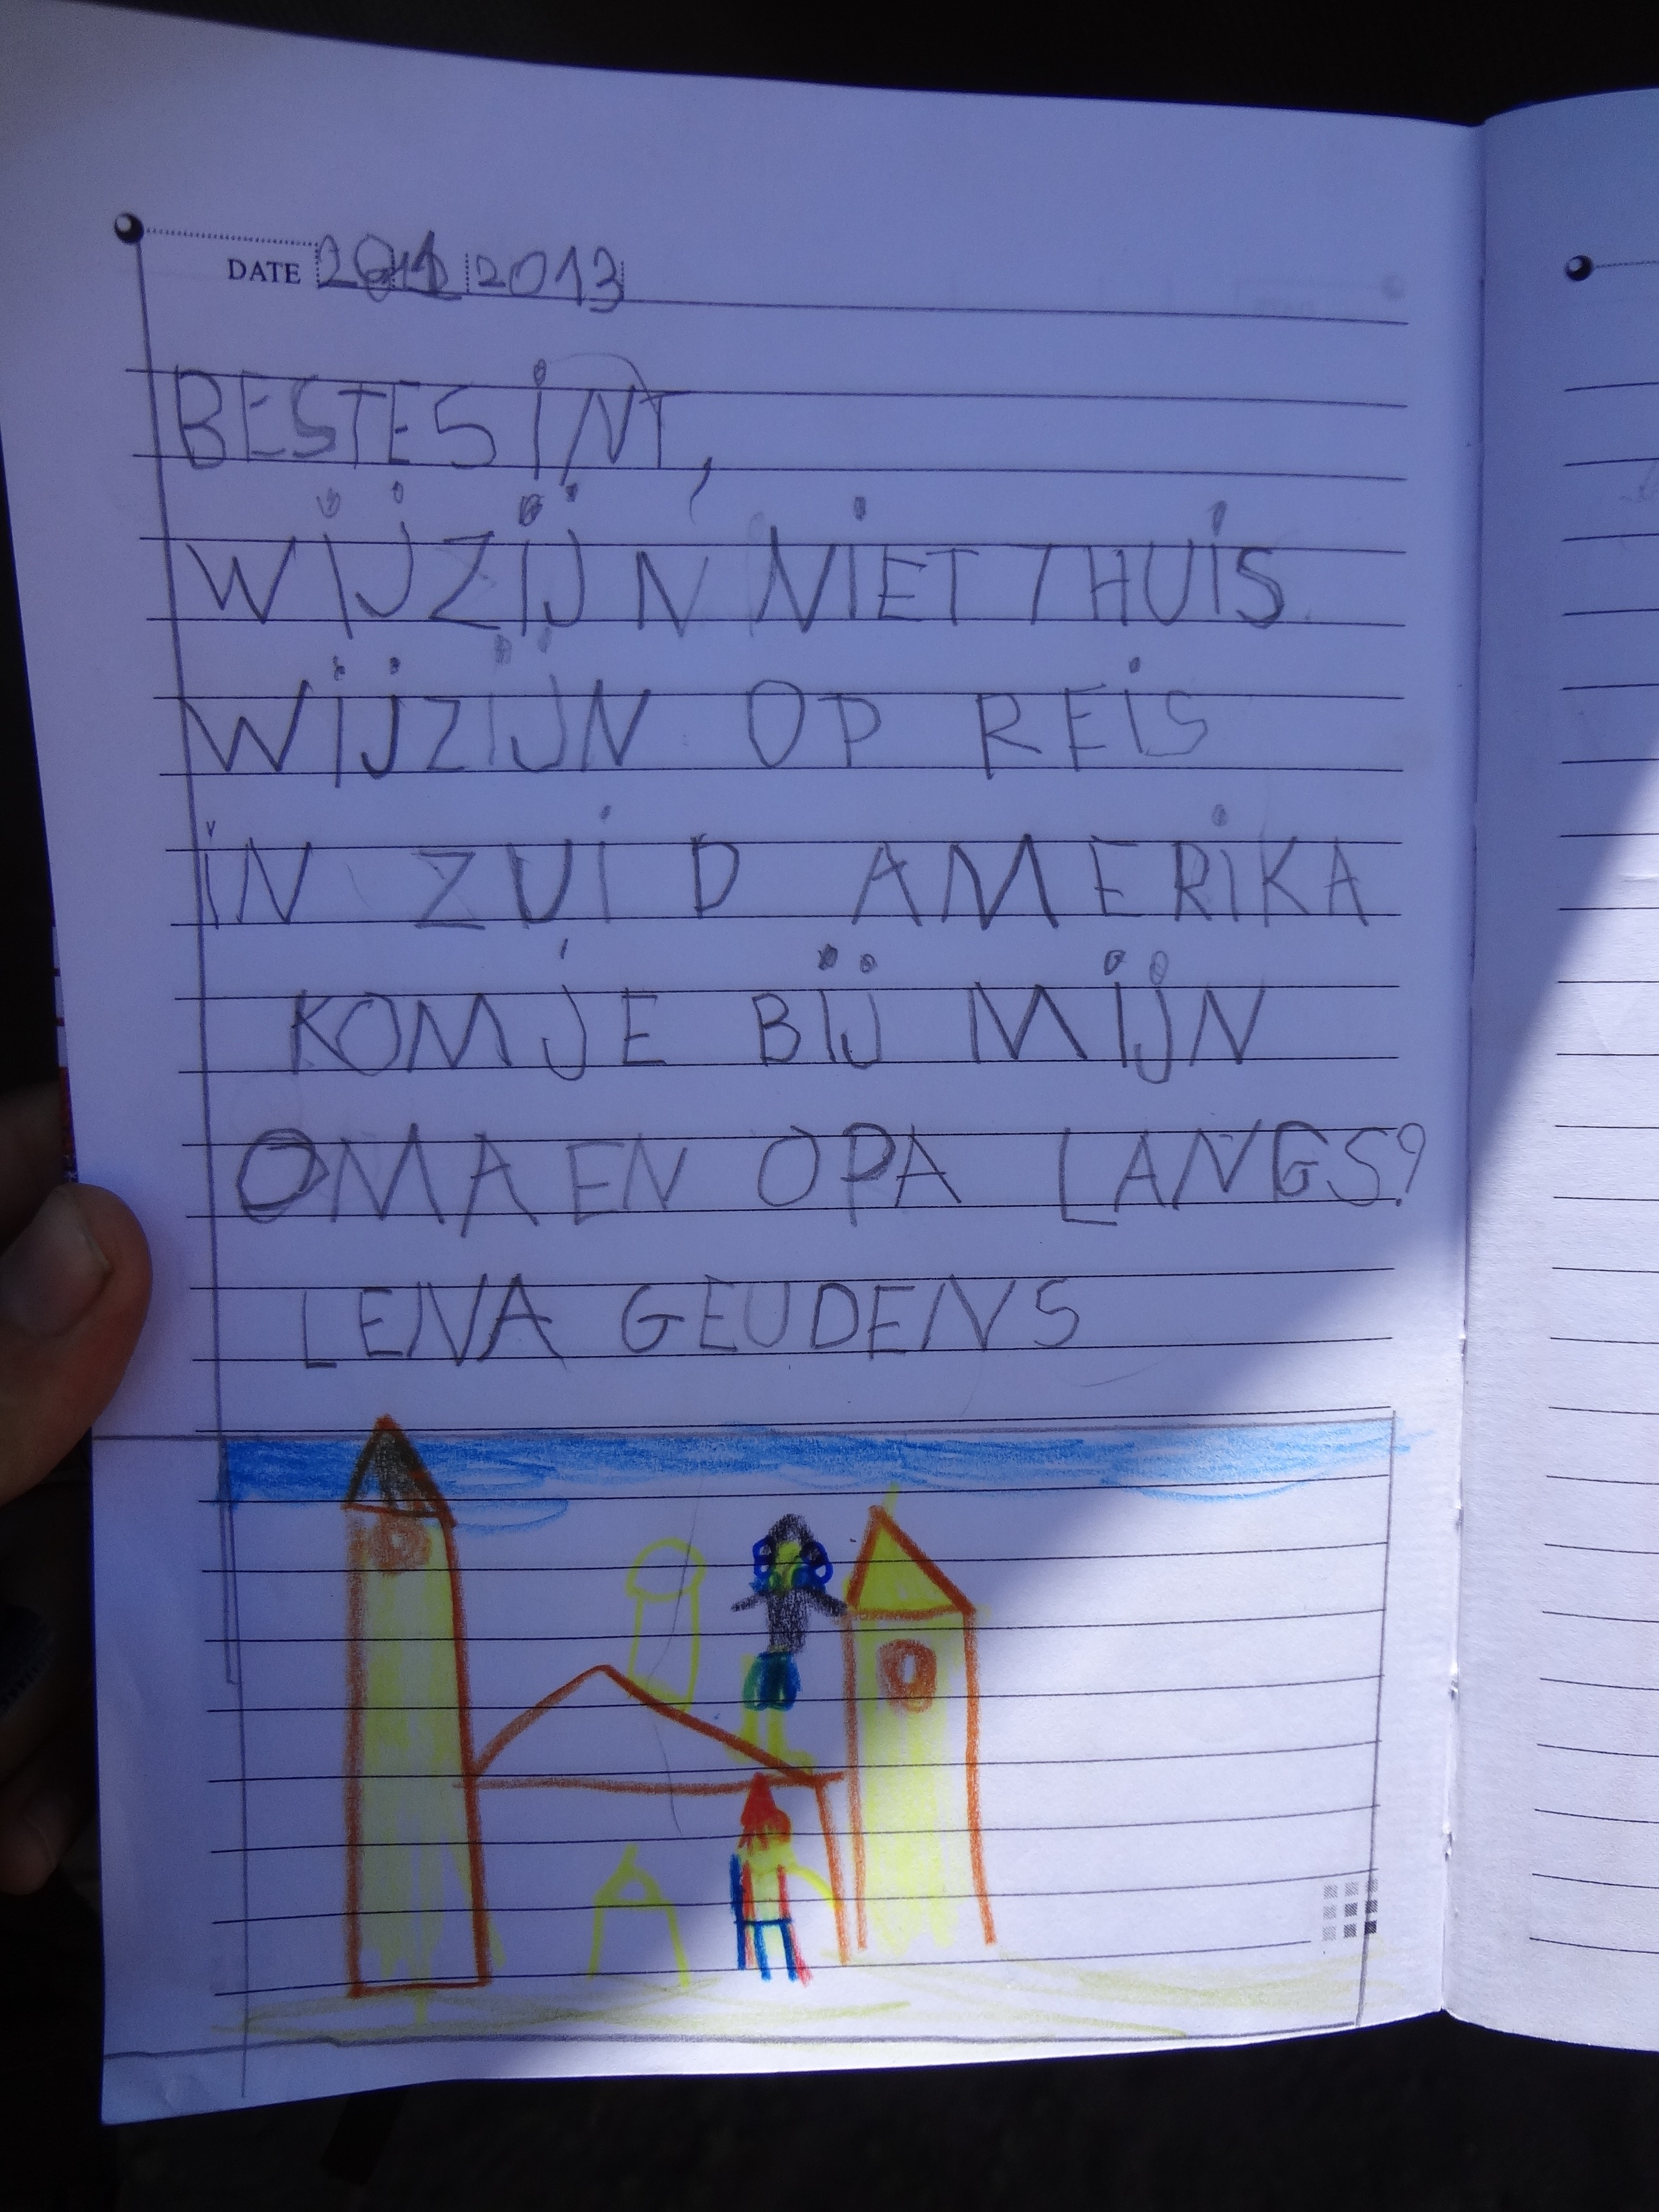 DATE 2013
BESTE SINT,
WIJ ZIJN NIET THUIS
WIJ ZIJN OP REIS
IN ZUID AMERIKA
KOM JE BIJ MIJN
OMA EN OPA LANGS?
LENA GEUDENS